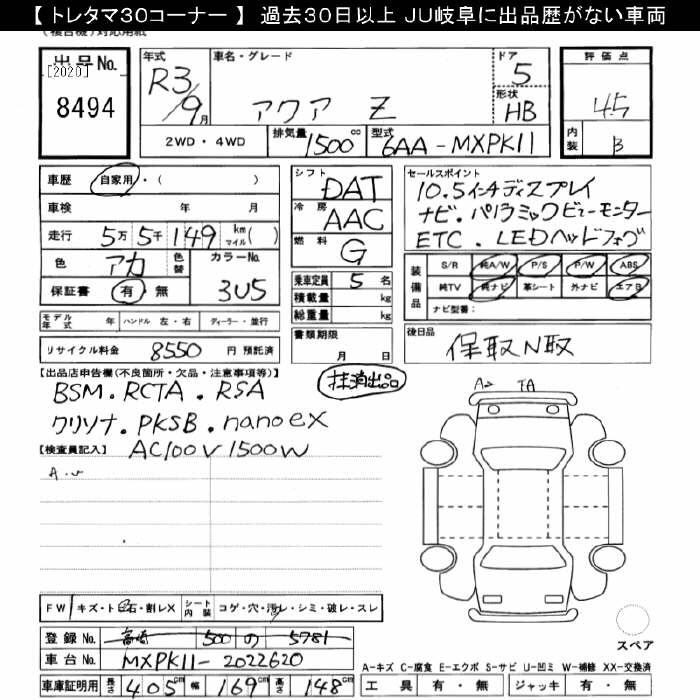 【トレタマ30コーナー】 過去30日以上 JU岐阜に出品歴がない車両
(複合機)対応用紙
出品No. 年式 車名・グレード ドア 評価点
[2020] R3/9月 アクア Z 5 4.5
8494 形状 HB
2WD・4WD 排気量 1500cc 型式 6AA-MXPK11 内装 B
車歴 自家用・( ) シフト DAT セールスポイント
車検 年 月 冷房 AAC 10.5インチディスプレイ
走行 5万5千149 km マイル( ) 燃料 G ナビ.パノラミックビューモニター
色 アカ 色替 カラーNo. 3U5 ETC.LEDヘッドフォグ
保証書 有・無 乗車定員 5名
積載量 kg
総重量 kg
装備品 S/R 純A/W P/S P/W ABS
純TV 純ナビ 革シート 外ナビ エアB
ナビ型番:
モデル年式 年 ハンドル 左・右 ディーラー・並行
書類期限 月 日
後日品 保取N取
リサイクル料金 8550 円 預託済
【出品店申告欄(不良箇所・欠品・注意事項等)】 抹消出品
BSM.RCTA.RSA
クリソナ.PKSB.nanoeX
AC100V1500W
【検査員記入】
A.
A> TA
FW キズ・ト石・割レX シート内装 コゲ・穴・汚レ・シミ・破レ・スレ
登録No. 高崎 500 の 5781
車台No. MXPK11-2022620
車庫証明用 長さ 405cm 幅 169cm 高さ 148cm
スペア
A-キズ C-腐食 E-エクボ S-サビ U-凹ミ W-補修 XX-交換済
工具 有・無 ジャッキ 有・無